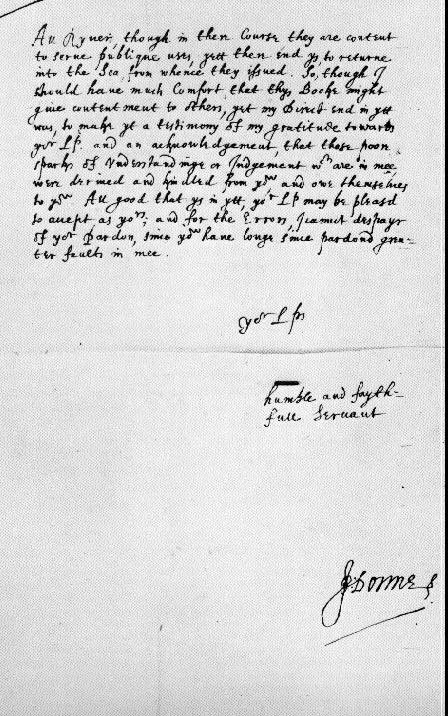 As Ryuers, though in theyr Course they are content
to serue publique uses, yett theyr end ys to returne
into the Sea, from whence they issued. So, though I
should have much Comfort that thys Booke might
giue contentment to others, yet my Direct end in ytt
was, to make yt a testimony of my gratitude towards
yor Lp. and an acknowledgement, that those poor
sparks of Vnderstandinge or Iudgement wch are in mee
were deriued and kindled from yow and owe themselues
to yow. All good that ys in ytt, yor Lp may be pleasd
to accept as yors; and for the Errors, I cannot despayr
of yor Pardon, since yow have longe since pardond grea-
ter faults in mee.
yor Lps
humble and fayth-
full Seruant
J: Donne